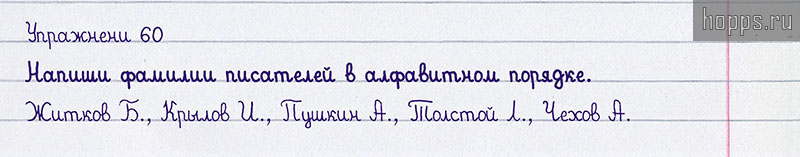 hopps.ru
Упражнени 60
Напиши фамилии писателей в алфавитном порядке.
Житков Б., Крылов И., Пушкин А., Толстой Л., Чехов А.